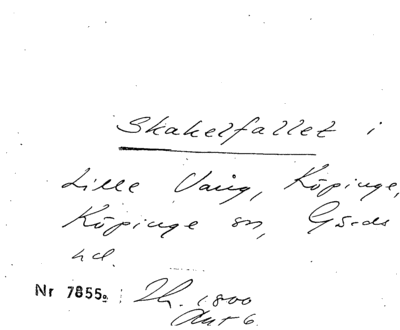 Skakelfallet i
Lille Vang, Köpinge,
Köpinge sn, Gärds
hd.
Nr 7855a: Th. 1800
Ant 6